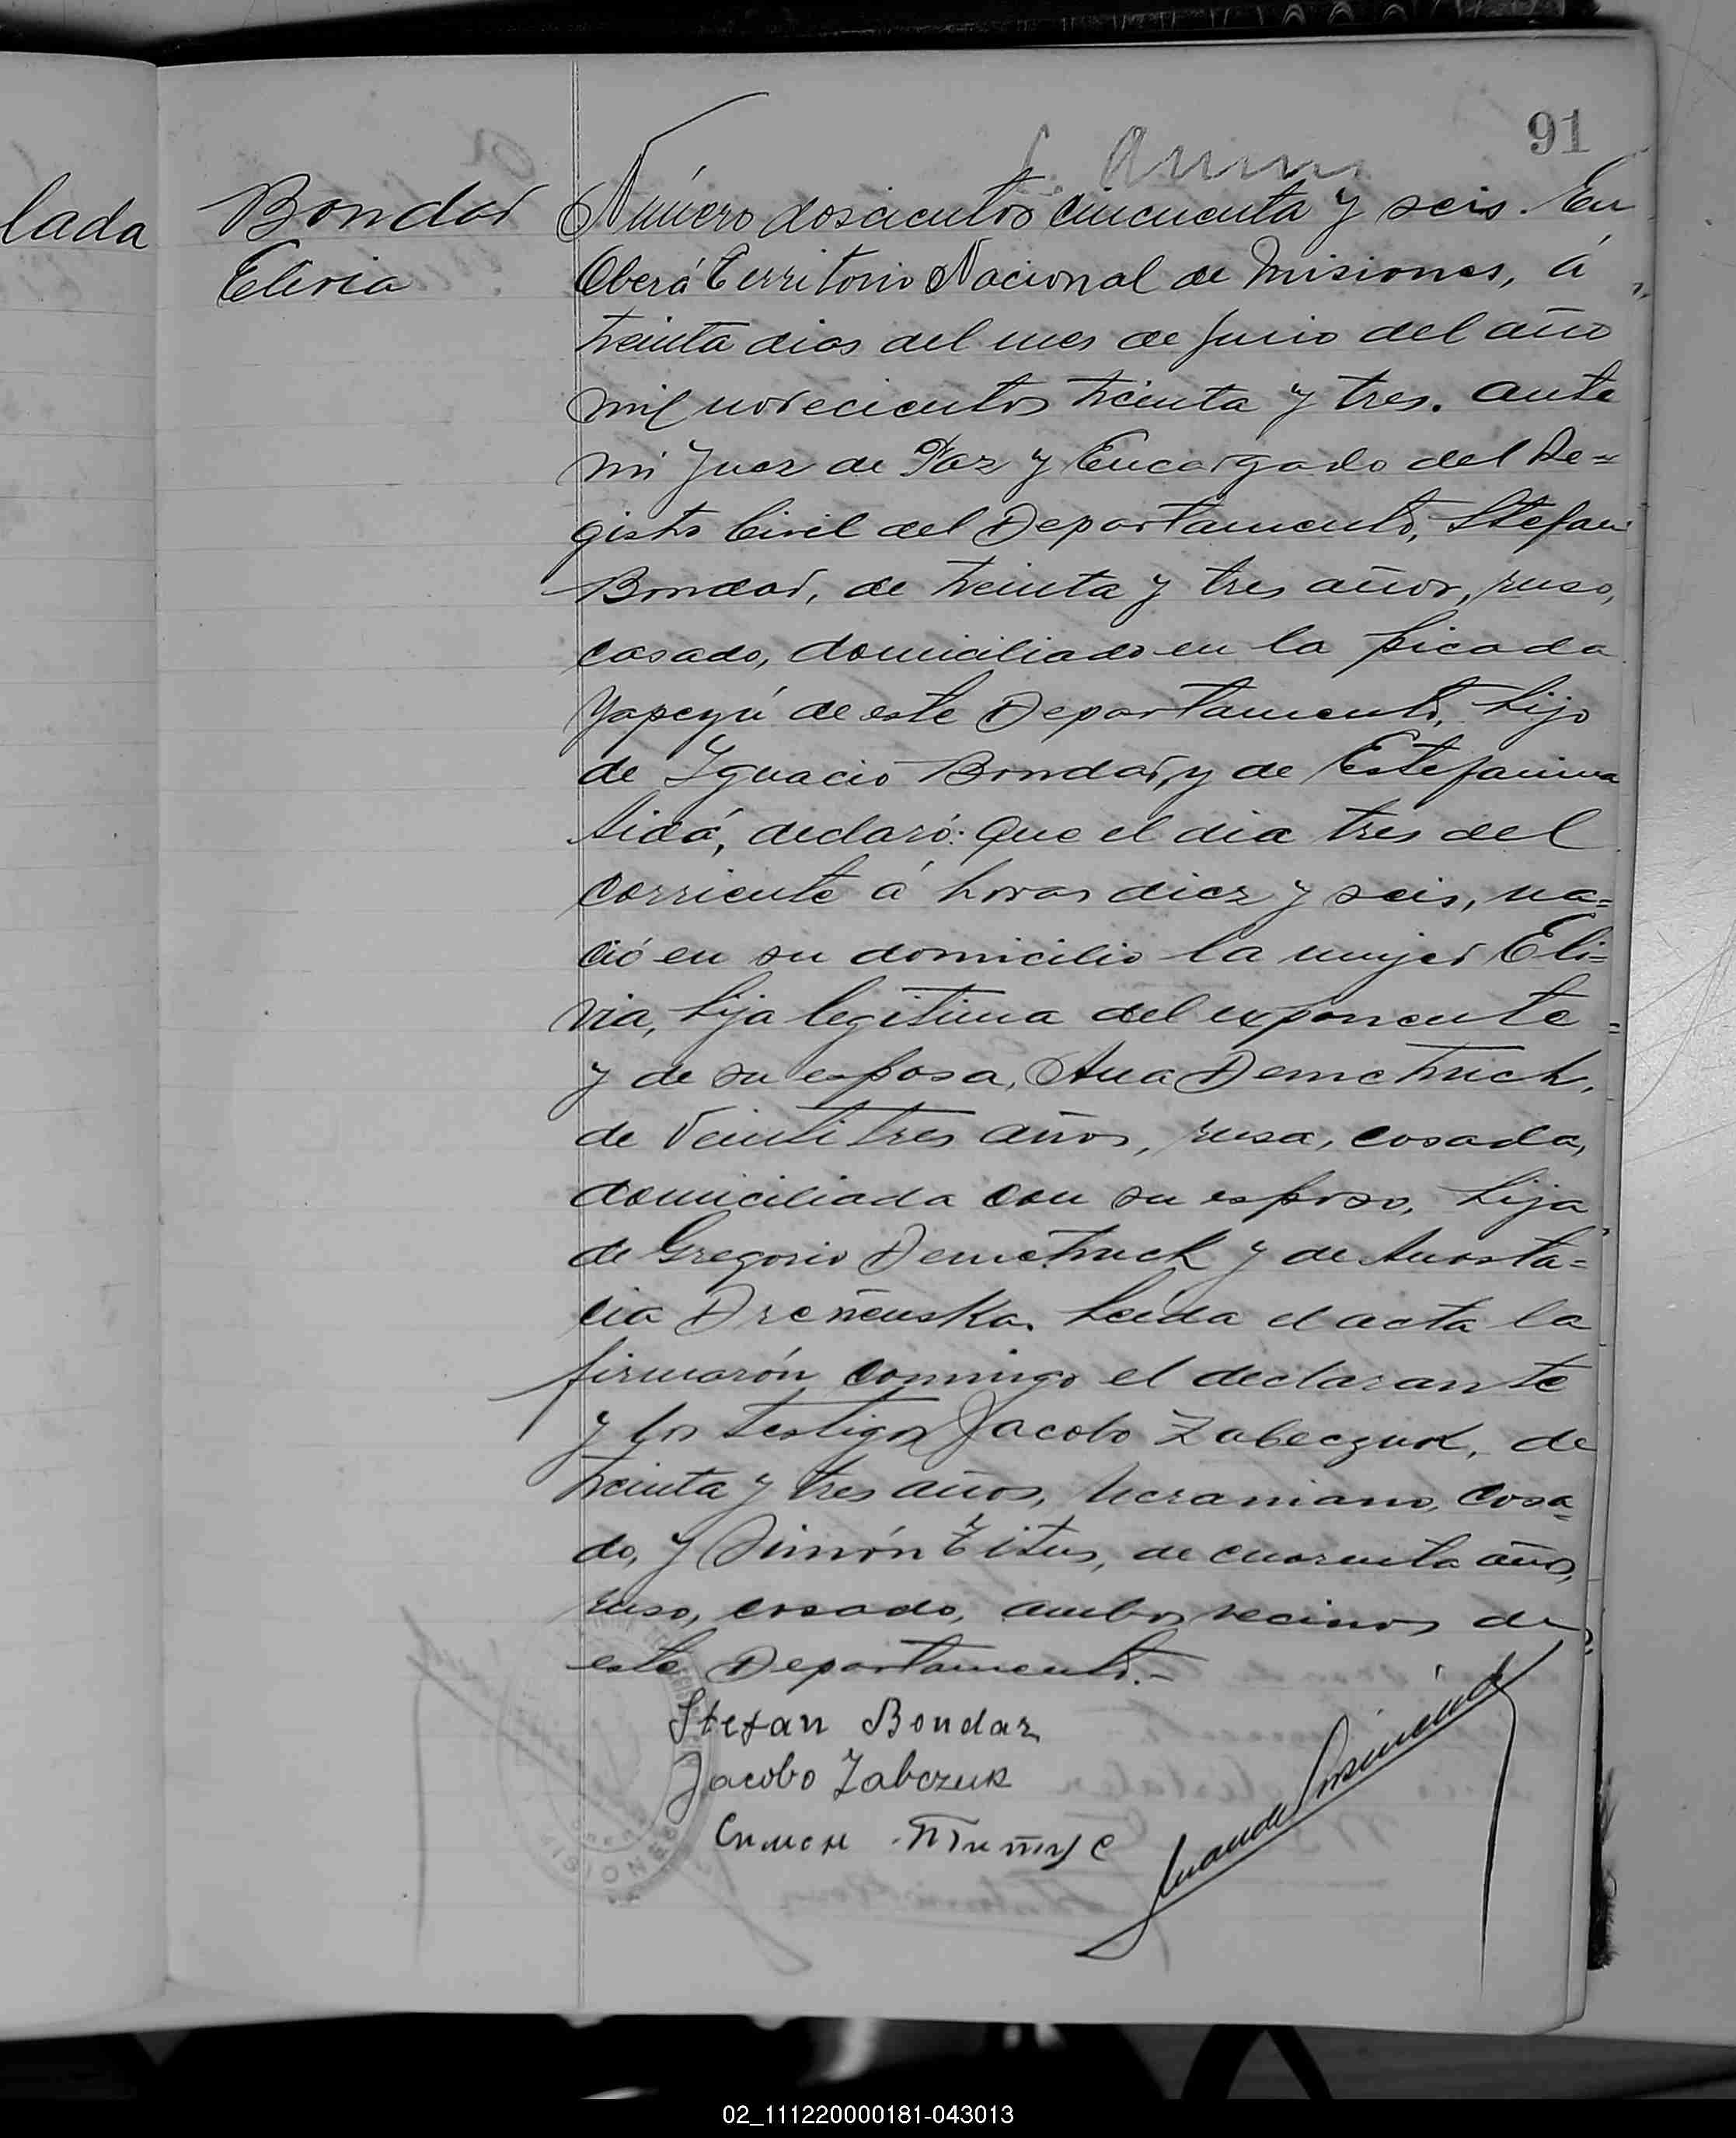 91
lada
Bondar
Elivia
Número doscientos cincuenta y seis. En
Oberá Territorio Nacional de Misiones, á
treinta dias del mes de Junio del año
mil novecientos treinta y tres. ante
mi Juez de Paz y Encargado del Re=
gistro Civil del Departamento, Stefan
Bondar, de treinta y tres años, ruso,
casado, domiciliado en la picada
Yapeyú de este Departamento, hijo
de Ignacio Bondar, y de Estefanina
declaró: Que el dia tres del
corriente á horas diez y seis, na=
ció en su domicilio la mujer Eli=
via, hija legitima del exponente
y de su esposa, Ana Demetruck,
de veinti tres años, rusa, casada,
domiciliada con su esposo, hija
de Gregorio Demetruck y de Anasta=
cia Leida el acta la
firmarón conmigo el declarante
y los testigos Jacobo Zabeczuk, de
treinta y tres años, Ucraniano, casa=
do, y Simón Titus, de cuarenta años,
ruso, casado, ambos vecinos de
este Departamento.-
Stefan Bondar
Jacobo Zabczuk
Симон Титус